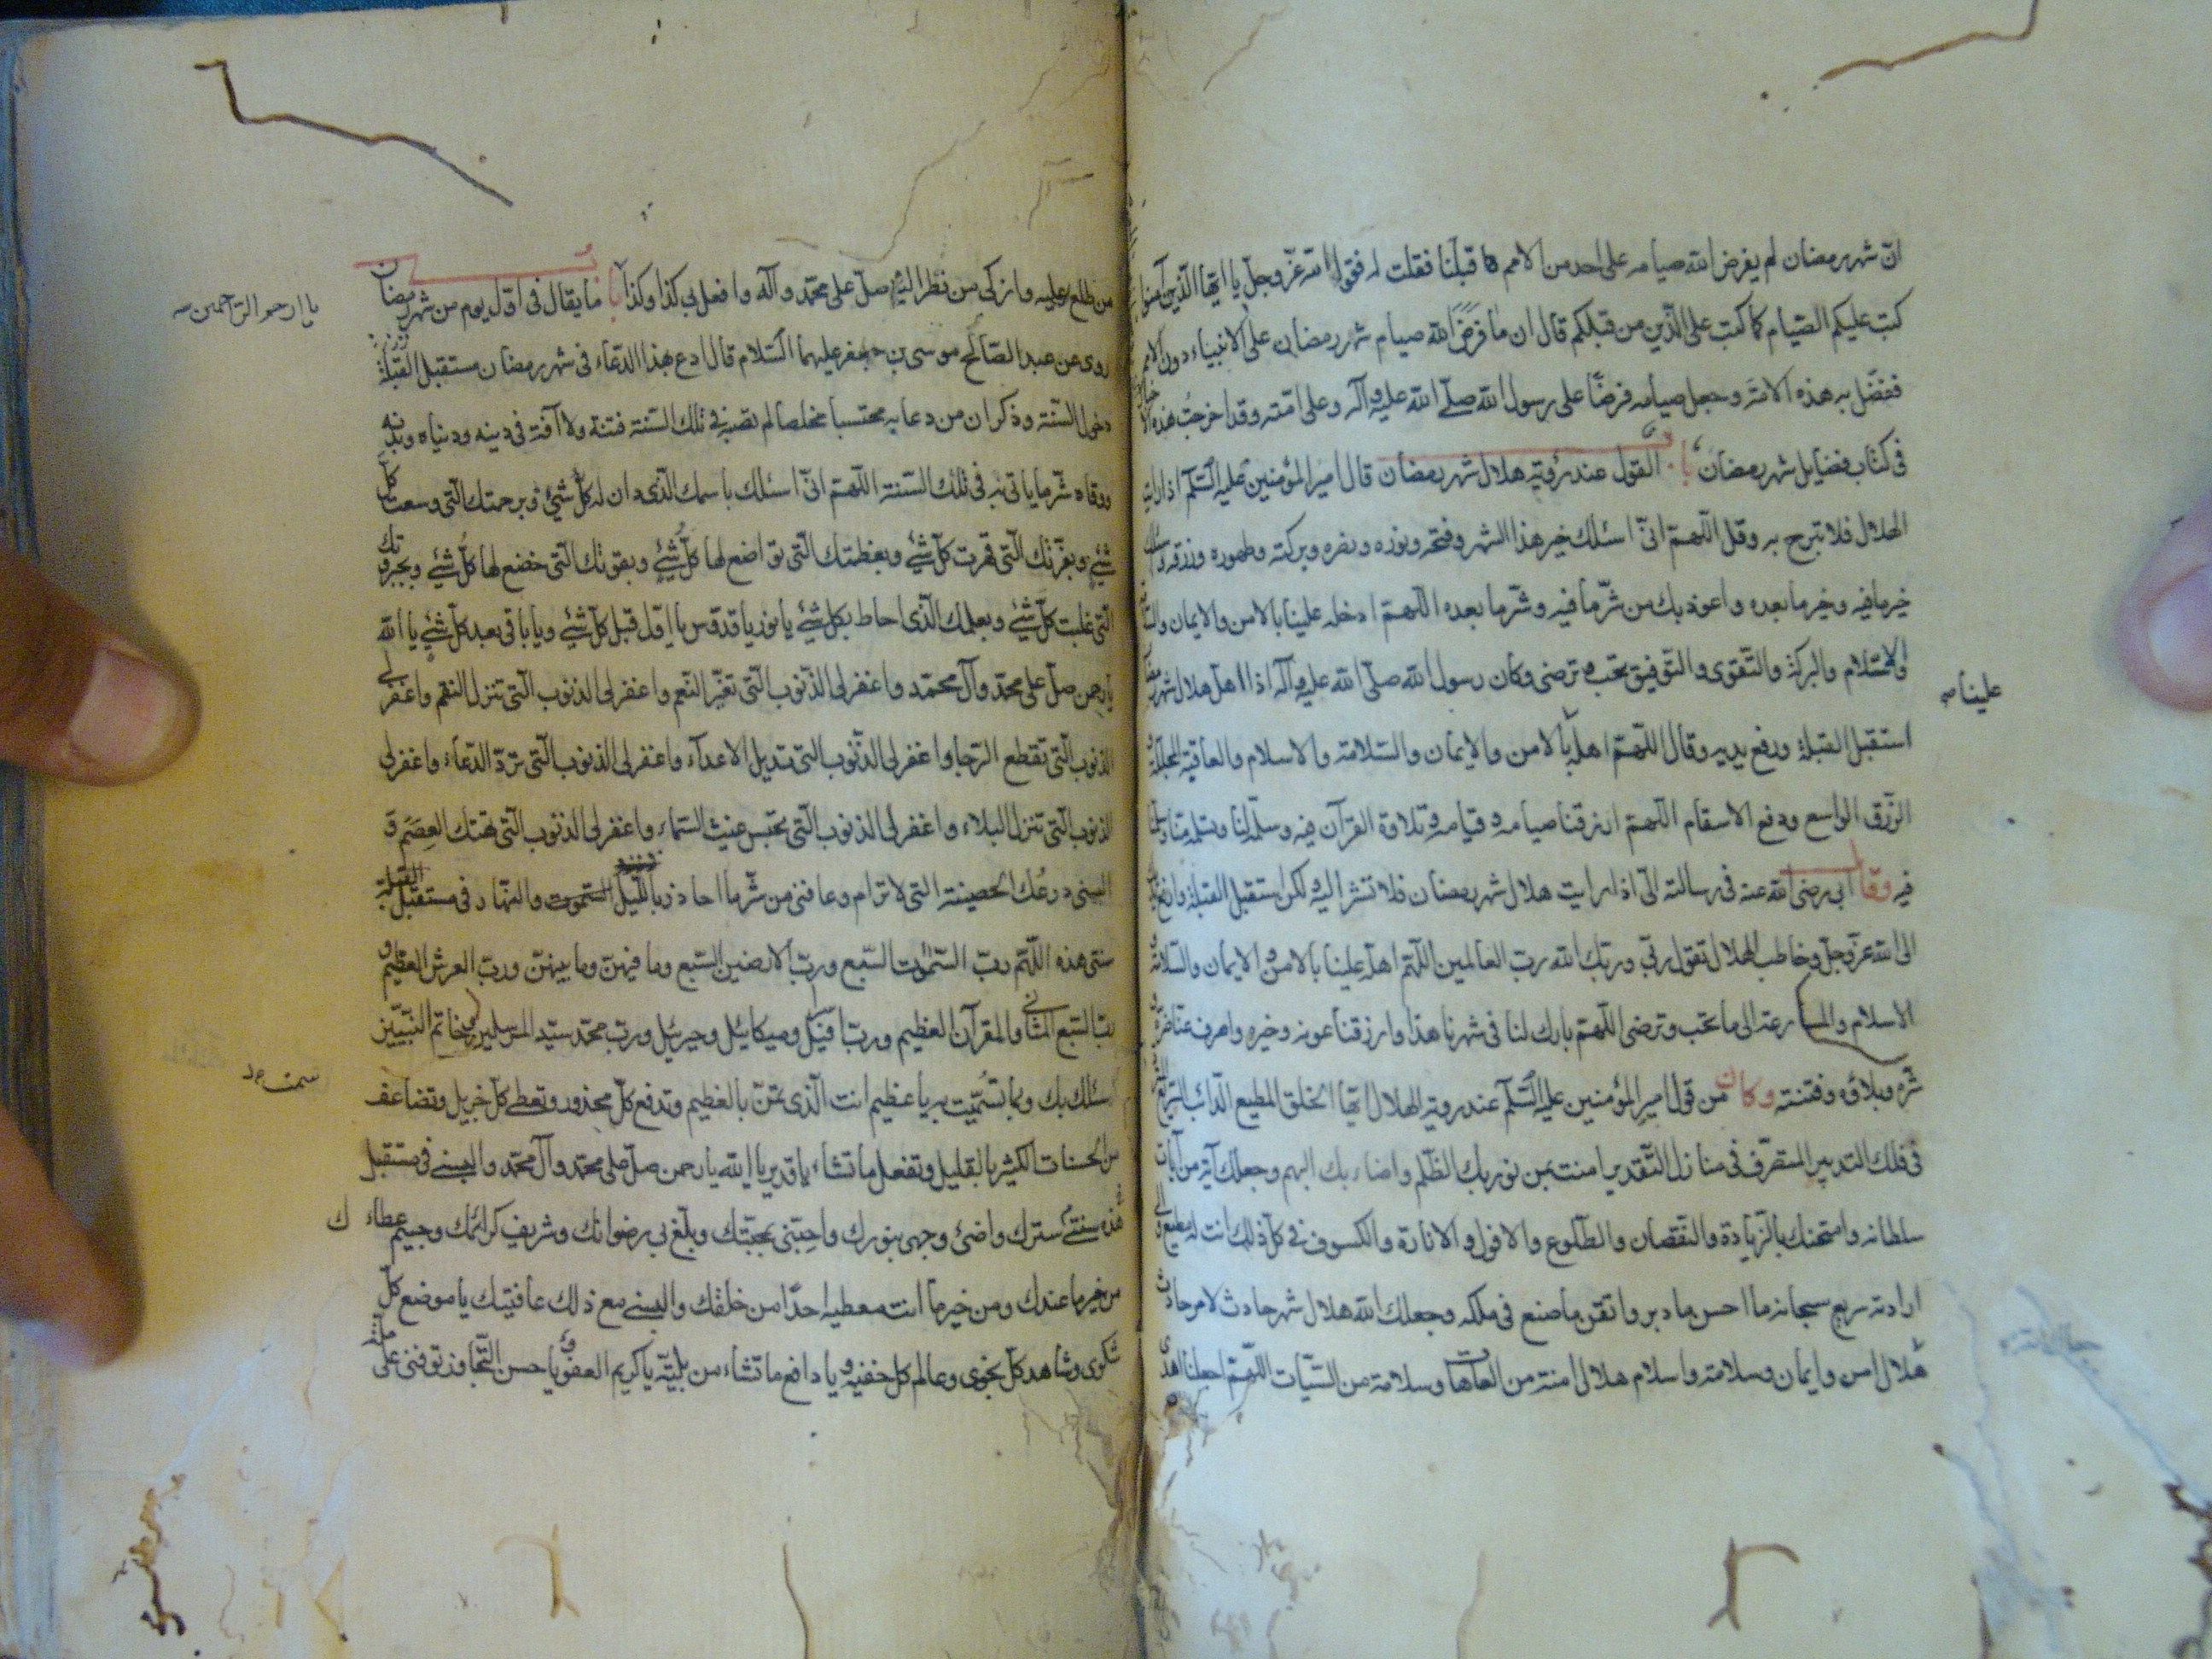 انّ شهر رمضان لم يفرض الله صيامه على احد من الامم قبلنا فقلت له فقول الله عزّ وجلّ يا ايّها الّذين آمنوا
كتب عليكم الصّيام كما كتب على الّذين من قبلكم قال ان ما فرض الله صيام شهر رمضان على الانبياء دون الامم
ففضّل به هذه الامّة وجعل صيامه فرضًا على رسول الله صلّى الله عليه وآله وعلى امّته وقد اخرجت هذه
فى كتاب فضايل شهر رمضان باب القول عند رؤية هلال شهر رمضان قال امير المؤمنين عليه السّلم اذا رايت
الهلال فلا تبرح به وقل اللّهمّ انّى اسئلك خير هذا الشهر وفتحه ونوره ونصره وبركته وطهوره ورزقه واسئلك
خير ما فيه وخير ما بعده واعوذ بك من شرّ ما فيه وشرّ ما بعده اللّهمّ ادخله علينا بالامن والايمان
والاسلام والبركة والتّقوى والتّوفيق تحبّ وترضى وكان رسول الله صلّى الله عليه وآله اذا اهلّ هلال شهر
علينا
استقبل القبلة ورفع يديه وقال اللّهمّ اهلّه بالامن والايمان والسّلامة والاسلام والعافية المجلّلة
الرّزق الواسع ودفع الاسقام اللّهمّ ارزقنا صيامه وقيامه وتلاوة القرآن فيه وسلّمه لنا وتسلّمه منّا وسلّمنا
فيه وقال ابى رضى الله عنه فى رسالته الىّ اذا رايت هلال شهر رمضان فلا تشر اليه ولكن استقبل القبلة وارفع
الى الله عزّ وجلّ وخاطب الهلال تقول ربّى وربّك الله ربّ العالمين اللّهمّ اهلّه علينا بالامن والايمان والسّلامة
الاسلام والمسارعة الى ما تحبّ وترضى اللّهمّ بارك لنا فى شهرنا هذا وارزقنا عونه وخيره واصرف عنّا ضرّه
شرّه وبلاؤه وفتنته وكان من قول امير المؤمنين عليه السّلم عند روية الهلال ايّها الخلق المطيع الدّائب السّريع
فى فلك التدبير المتصرّف فى منازل التّقدير امنت بمن نوّر بك الظّلم واضاء بك البهم وجعلك آية من آيات
سلطانه وامتحنك بالزّيادة والنّقصان والطّلوع والافول والانارة والكسوف فى كلّ ذلك انت له مطيع والى
ارادته سريع سبحانه ما احسن ما دبر واتقن ما صنع فى ملكه وجعلك الله هلال شهر حادث لامر حادث
هلال امن وايمان وسلامة واسلام هلال امنة من العاهات وسلامة من السّيّات اللّهمّ اجعلنا اهدى
من طلع عليه وازكى من نظر اليه وصلّ على محمّد وآله وافعل بى كذا وكذا باب ما يقال فى اوّل يوم من شهر رمضان
يا ارحم الرّاحمين
روى عن عبد الصّالح موسى بن جعفر عليهما السّلام قال ادع بهذا الدّعاء فى شهر رمضان مستقبل القبلة
دخول السّنة وذكر ان من دعا به محتسبا مخلصا لم تصبه فى تلك السّنة فتنة ولا آفة فى دينه ودنياه وبدنه
ووقاه شرّ ما ياتى به فى تلك السّنة اللّهمّ انّى اسئلك باسمك الّذى دان له كلّ شيئ وبرحمتك الّتى وسعت كلّ
شيئ وبعزّتك الّتى قهرت كلّ شيئ وبعظمتك الّتى تواضع لها كلّ شيئ وبقوّتك الّتى خضع لها كلّ شيئ وبجبروتك
الّتى غلبت كلّ شيئ وبعلمك الّذى احاط بكلّ شيئ يا نور يا قدّوس يا اوّل قبل كلّ شيئ ويا باقى بعد كلّ شيئ يا الله
يا رحمن صلّ على محمّد وآل محمّد واغفر لى الذّنوب الّتى تغيّر النّعم واغفر لى الذنوب الّتى تنزل النّقم واغفر لى
الذنوب الّتى تقطع الرّجا واغفر لى الذّنوب الّتى تديل الاعداء واغفر لى الذنوب الّتى تردّ الدّعاء واغفر لى
الذنوب الّتى تنزل البلاء واغفر لى الذنوب الّتى تحبس غيث السّماء واغفر لى الذنوب الّتى تهتك العصم و
البسنى درعك الحصينة التى لا ترام وعافنى من شرّ ما احاذر باللّيل والنّهار فى مستقبل
سنتى هذه اللّهمّ ربّ السّموات السّبع وربّ الارضين السّبع وما فيهنّ وما بينهنّ وربّ العرش العظيم و
ربّ السّبع المثانى والقرآن العظيم وربّ اسرافيل وميكائيل وجبرئيل وربّ محمّد سيّد المرسلين وخاتم النّبيّين
اسئلك بك وبما تسمّيت به يا عظيم انت الّذى تمنّ بالعظيم وتدفع كلّ محذور وتعطى كلّ جزيل وتضاعف
من الحسنات الكثير بالقليل وتفعل ما تشاء يا قدير يا الله يا رحمن صلّ على محمّد وآل محمّد والبسنى فى مستقبل
هذه سنتى سترك واضئ وجهى بنورك واحبّنى بمحبّتك وبلّغ بى رضوانك وشريف كرائمك وجسيم عطاءك
من خير ما عندك ومن خير ما انت معطيه احدًا من خلقك والبسنى مع ذلك عافيتك يا موضع كلّ
شكوى وشاهد كلّ نجوى وعالم كلّ خفيّة ويا دافع ما تشاء من بليّة يا كريم العفو يا حسن التّجاوز توفّنى على ملّة